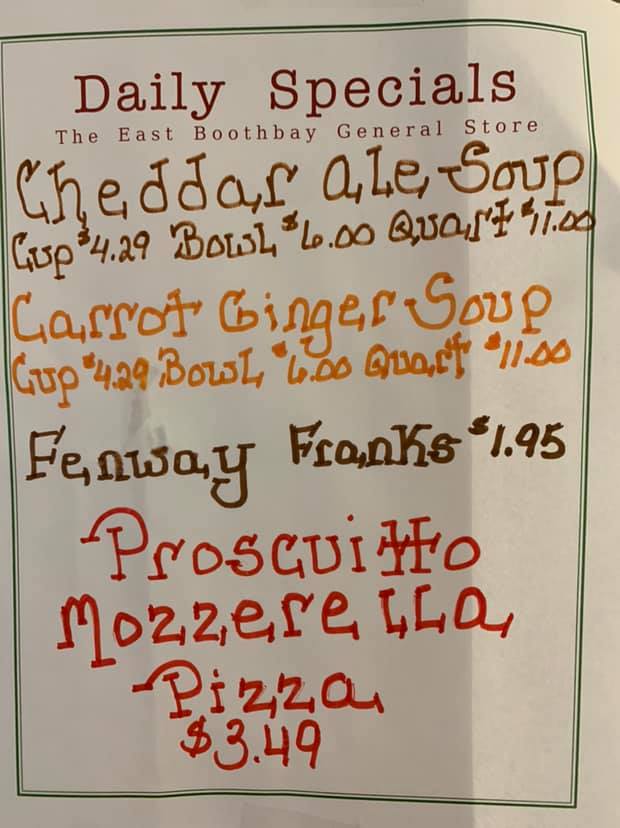 Daily Specials
The East Boothbay General Store
Cheddar Ale Soup
Cup $4.29 Bowl $6.00 Quart $11.00
Carrot Ginger Soup
Cup $4.29 Bowl $6.00 Quart $11.00
Fenway Franks $1.95
Proscuitto
Mozzerella
Pizza
$3.49